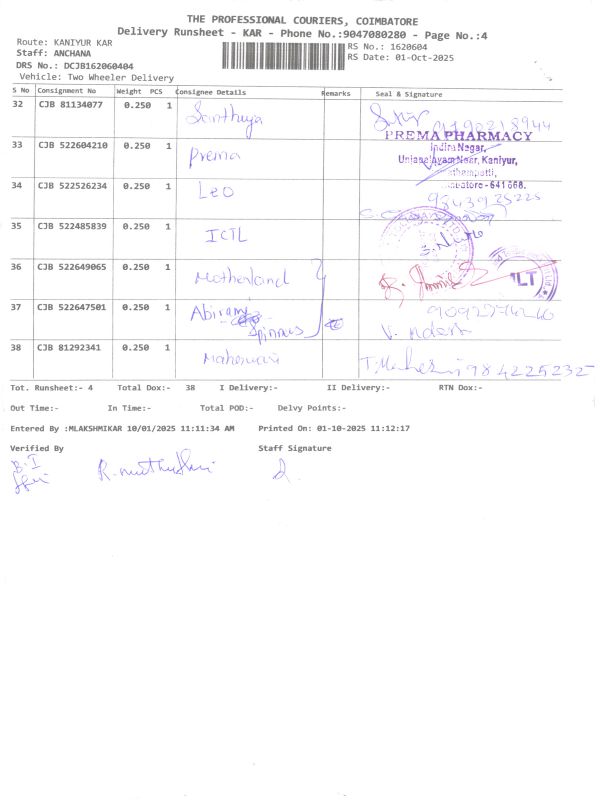 THE PROFESSIONAL COURIERS, COIMBATORE
Delivery Runsheet - KAR - Phone No.:9047080280 - Page No.:4
Route: KANIYUR KAR
Staff: ANCHANA
DRS No.: DCJB162060404
Vehicle: Two Wheeler Delivery
RS No.: 1620604
RS Date: 01-Oct-2025
S No Consignment No Weight PCS Consignee Details Remarks Seal & Signature
32 CJB 81134077 0.250 1
PREMA PHARMACY
Indira Nagar,
33 CJB 522604210 0.250 1 Prema
Kaniyur,
34 CJB 522526234 0.250 1 LEO
- 641 668.
9843925225
35 CJB 522485839 0.250 1 ICTL
36 CJB 522649065 0.250 1 Motherland
37 CJB 522647501 0.250 1 Abirami
Spinners
38 CJB 81292341 0.250 1 Maheswari
9842252325
Tot. Runsheet:- 4 Total Dox:- 38 I Delivery:- II Delivery:- RTN Dox:-
Out Time:- In Time:- Total POD:- Delvy Points:-
Entered By :MLAKSHMIKAR 10/01/2025 11:11:34 AM Printed On: 01-10-2025 11:12:17
Verified By Staff Signature